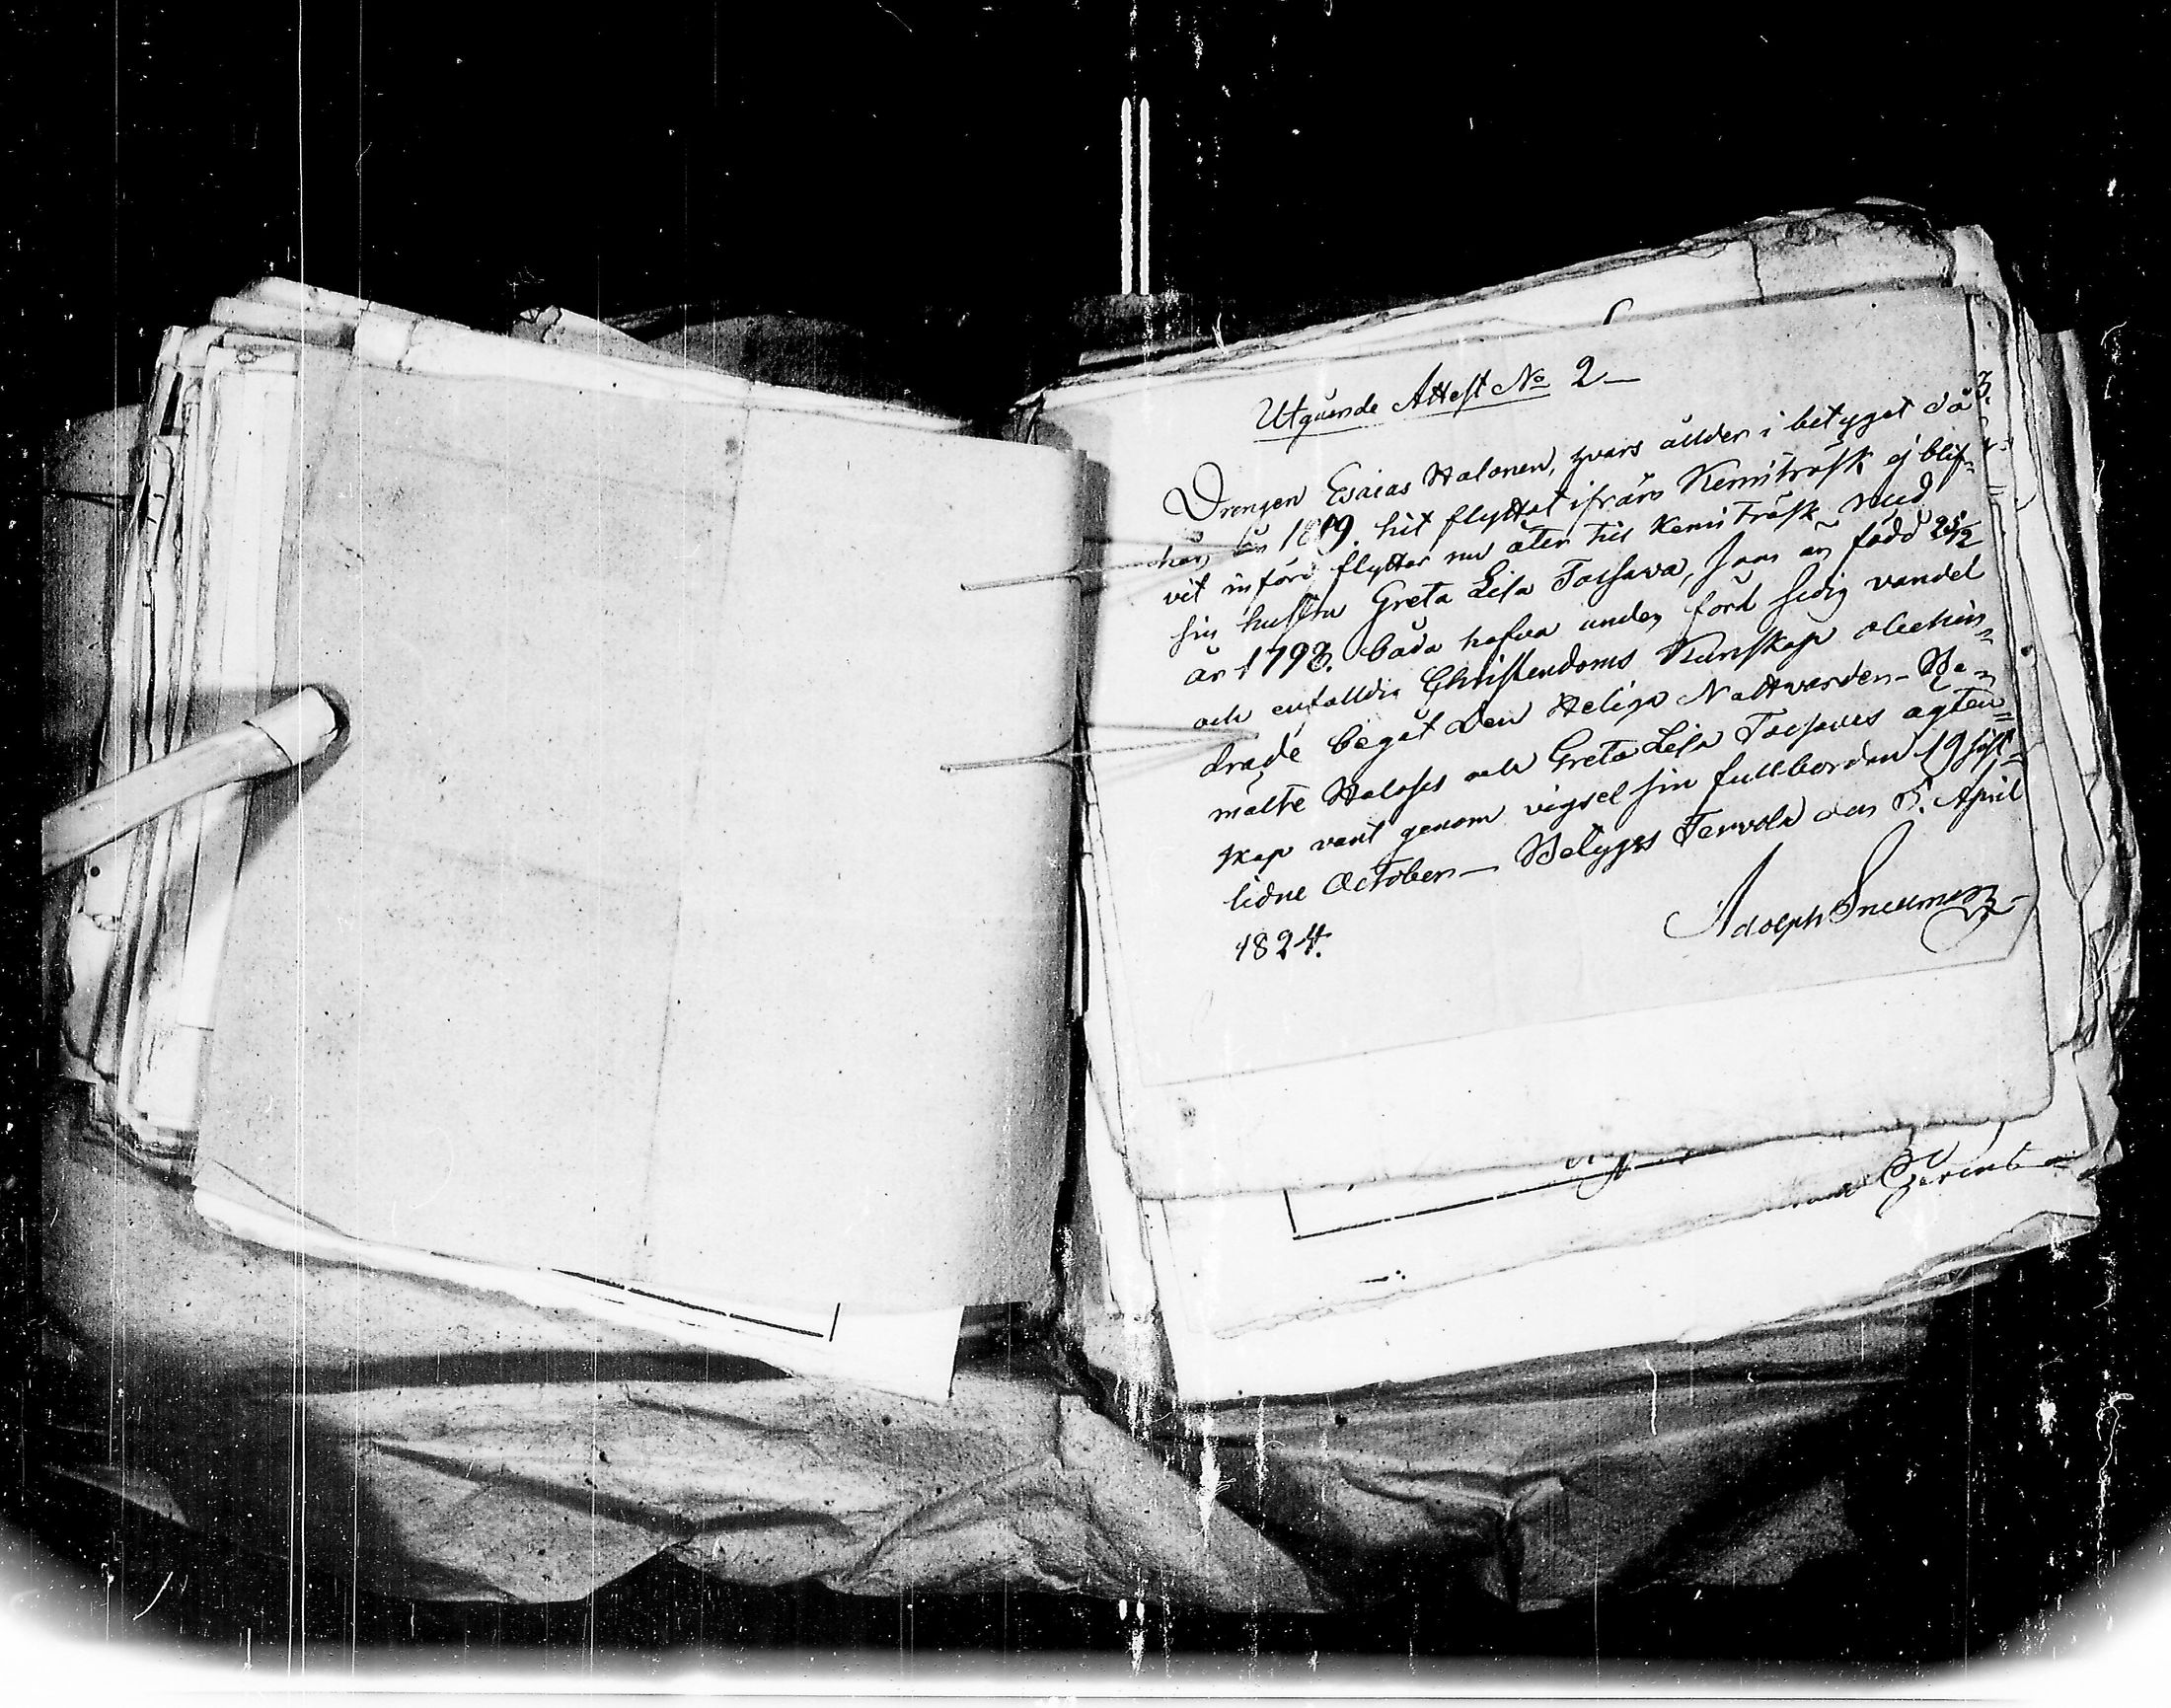 Utgående Attest No 2
3.
Drengen Esaias Halonen, hvars ållder i betyget då
han år 1819. hit flyttat ifrån Kemiträsk ej blif-
vit införd flyttar nu åter til Kemi Träsk med
sin hustru Greta Lisa Tossava, som är född 25/2
år 1798. båda hafva under förd sedig vandel
och enfalldig Christendoms Kunskap obehin-
drade begåt den Heliga Nattvarden - Be-
mälte Haloses och Greta Lisa Tossavas agten-
skap vant genom vigsel sin fullbordan 19 sist-
lidne October - Betygas Tervola den 5. April
1824.
Adolph Snellman